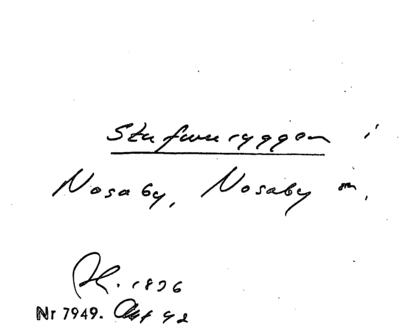 Stufwuryggen i
Nosaby, Nosaby sn,
Sk. 1826
Nr 7949. Akt 42